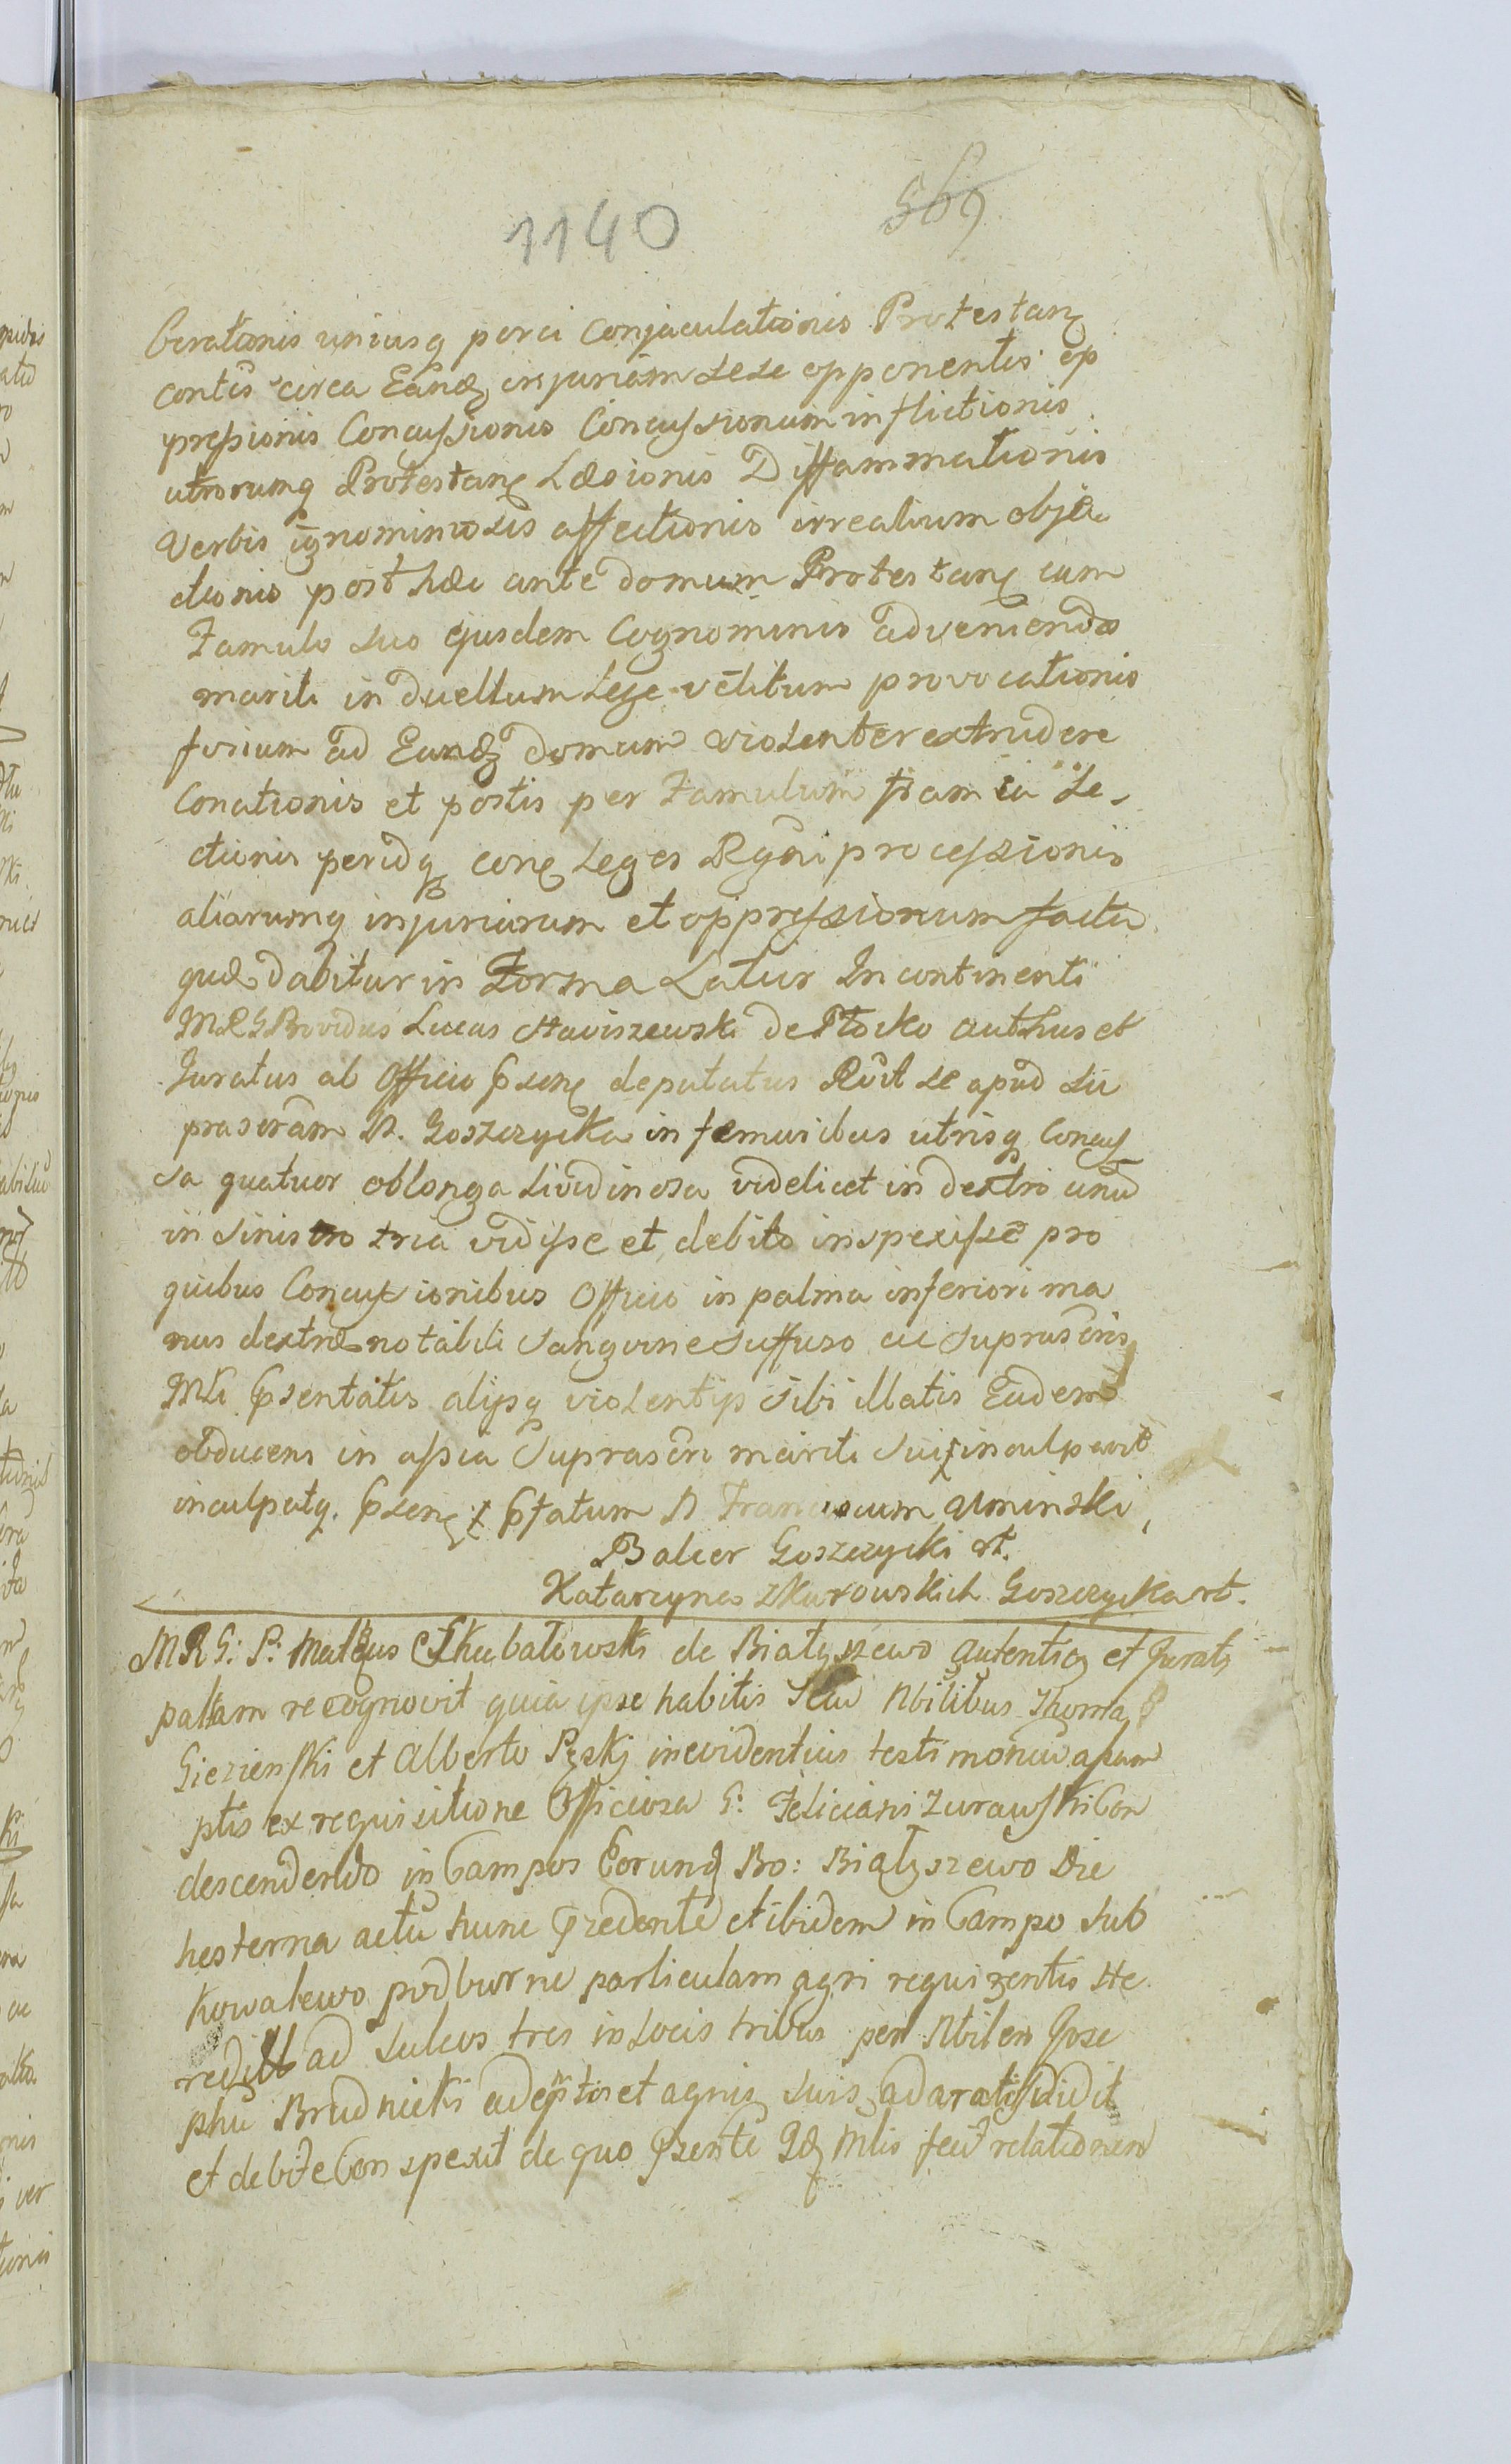 1140
569
beratonis uniusq porci Conjaculationis Protestan
contis circa Eand injuriam sese opponentis op
pressionis Concussionis Concussionum inflictionis
utrorumq Protestan Læsionis Diffammationis
Verbis ignominiosis affectionis irrealium obje
ctionis post hæc ante domum Protestan cum
Famulo suo ejusdem Cognominis adveniendo
mariti in duellum Lege vetitum provocationis
ad Eand domum violenter extrudere
Conationis et postis per Famulum Se
ctionis con Leges Regni processionis
aliarumq injuriarum et oppressionum factu
quæ dabitur in Forma Latius In continenti
MRG Providus Lucas Staviszewski de Płocko authus et
Juratus ab Officio psen deputatus Rcit se apud su
prascram N. Goszczycka in femuribus utrisq Concus
sa quatuor oblonga Lividinosa videlicet in dextro unu
in sinistro tria vidisse et debito inspexisse pro
quibus Concussionibus Officio in palma inferiori ma
nus dextræ notabili sanguine suffuso ac suprascris
Mli psentatis alysq violentys sibi illatis Eadem
obducens in assia suprascri mariti sui inculpavit
inculpatq. psen pfatum N Franciscum Uminski
Balcer Goszczycki rt.
Katarzyna z Kurowskich Goszczycka rt.
MRG: P: Mateus Skubatowski de Białyszewo autentiq et Jurats
palam recognovit quia ipse habitis secu Nbilibus Thoma
Giezienski et Alberto Pęski in evidentius testimoniu assum
ptis ex requisitione Officiosa G: Feliciani Zurawski Con
descendendo in Campos Eorund Bo: Białyszewo Die
hesterna actu hunc pcedente et ibidem in Campo sub
Kowalewo podburne particulam agri requirentis He
redit ad sulcos tres in Locis tribus per Nbilem Jose
phu Brudnicki ademptis et agris suis adaratis vidit
et debite Conspexit de quo psente Qd Mlis fecit relationem